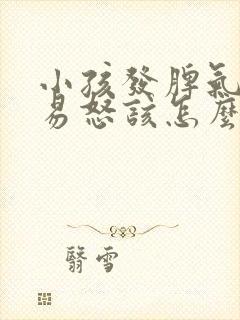 小孩發脾氣
易怒該怎麼
翳雪